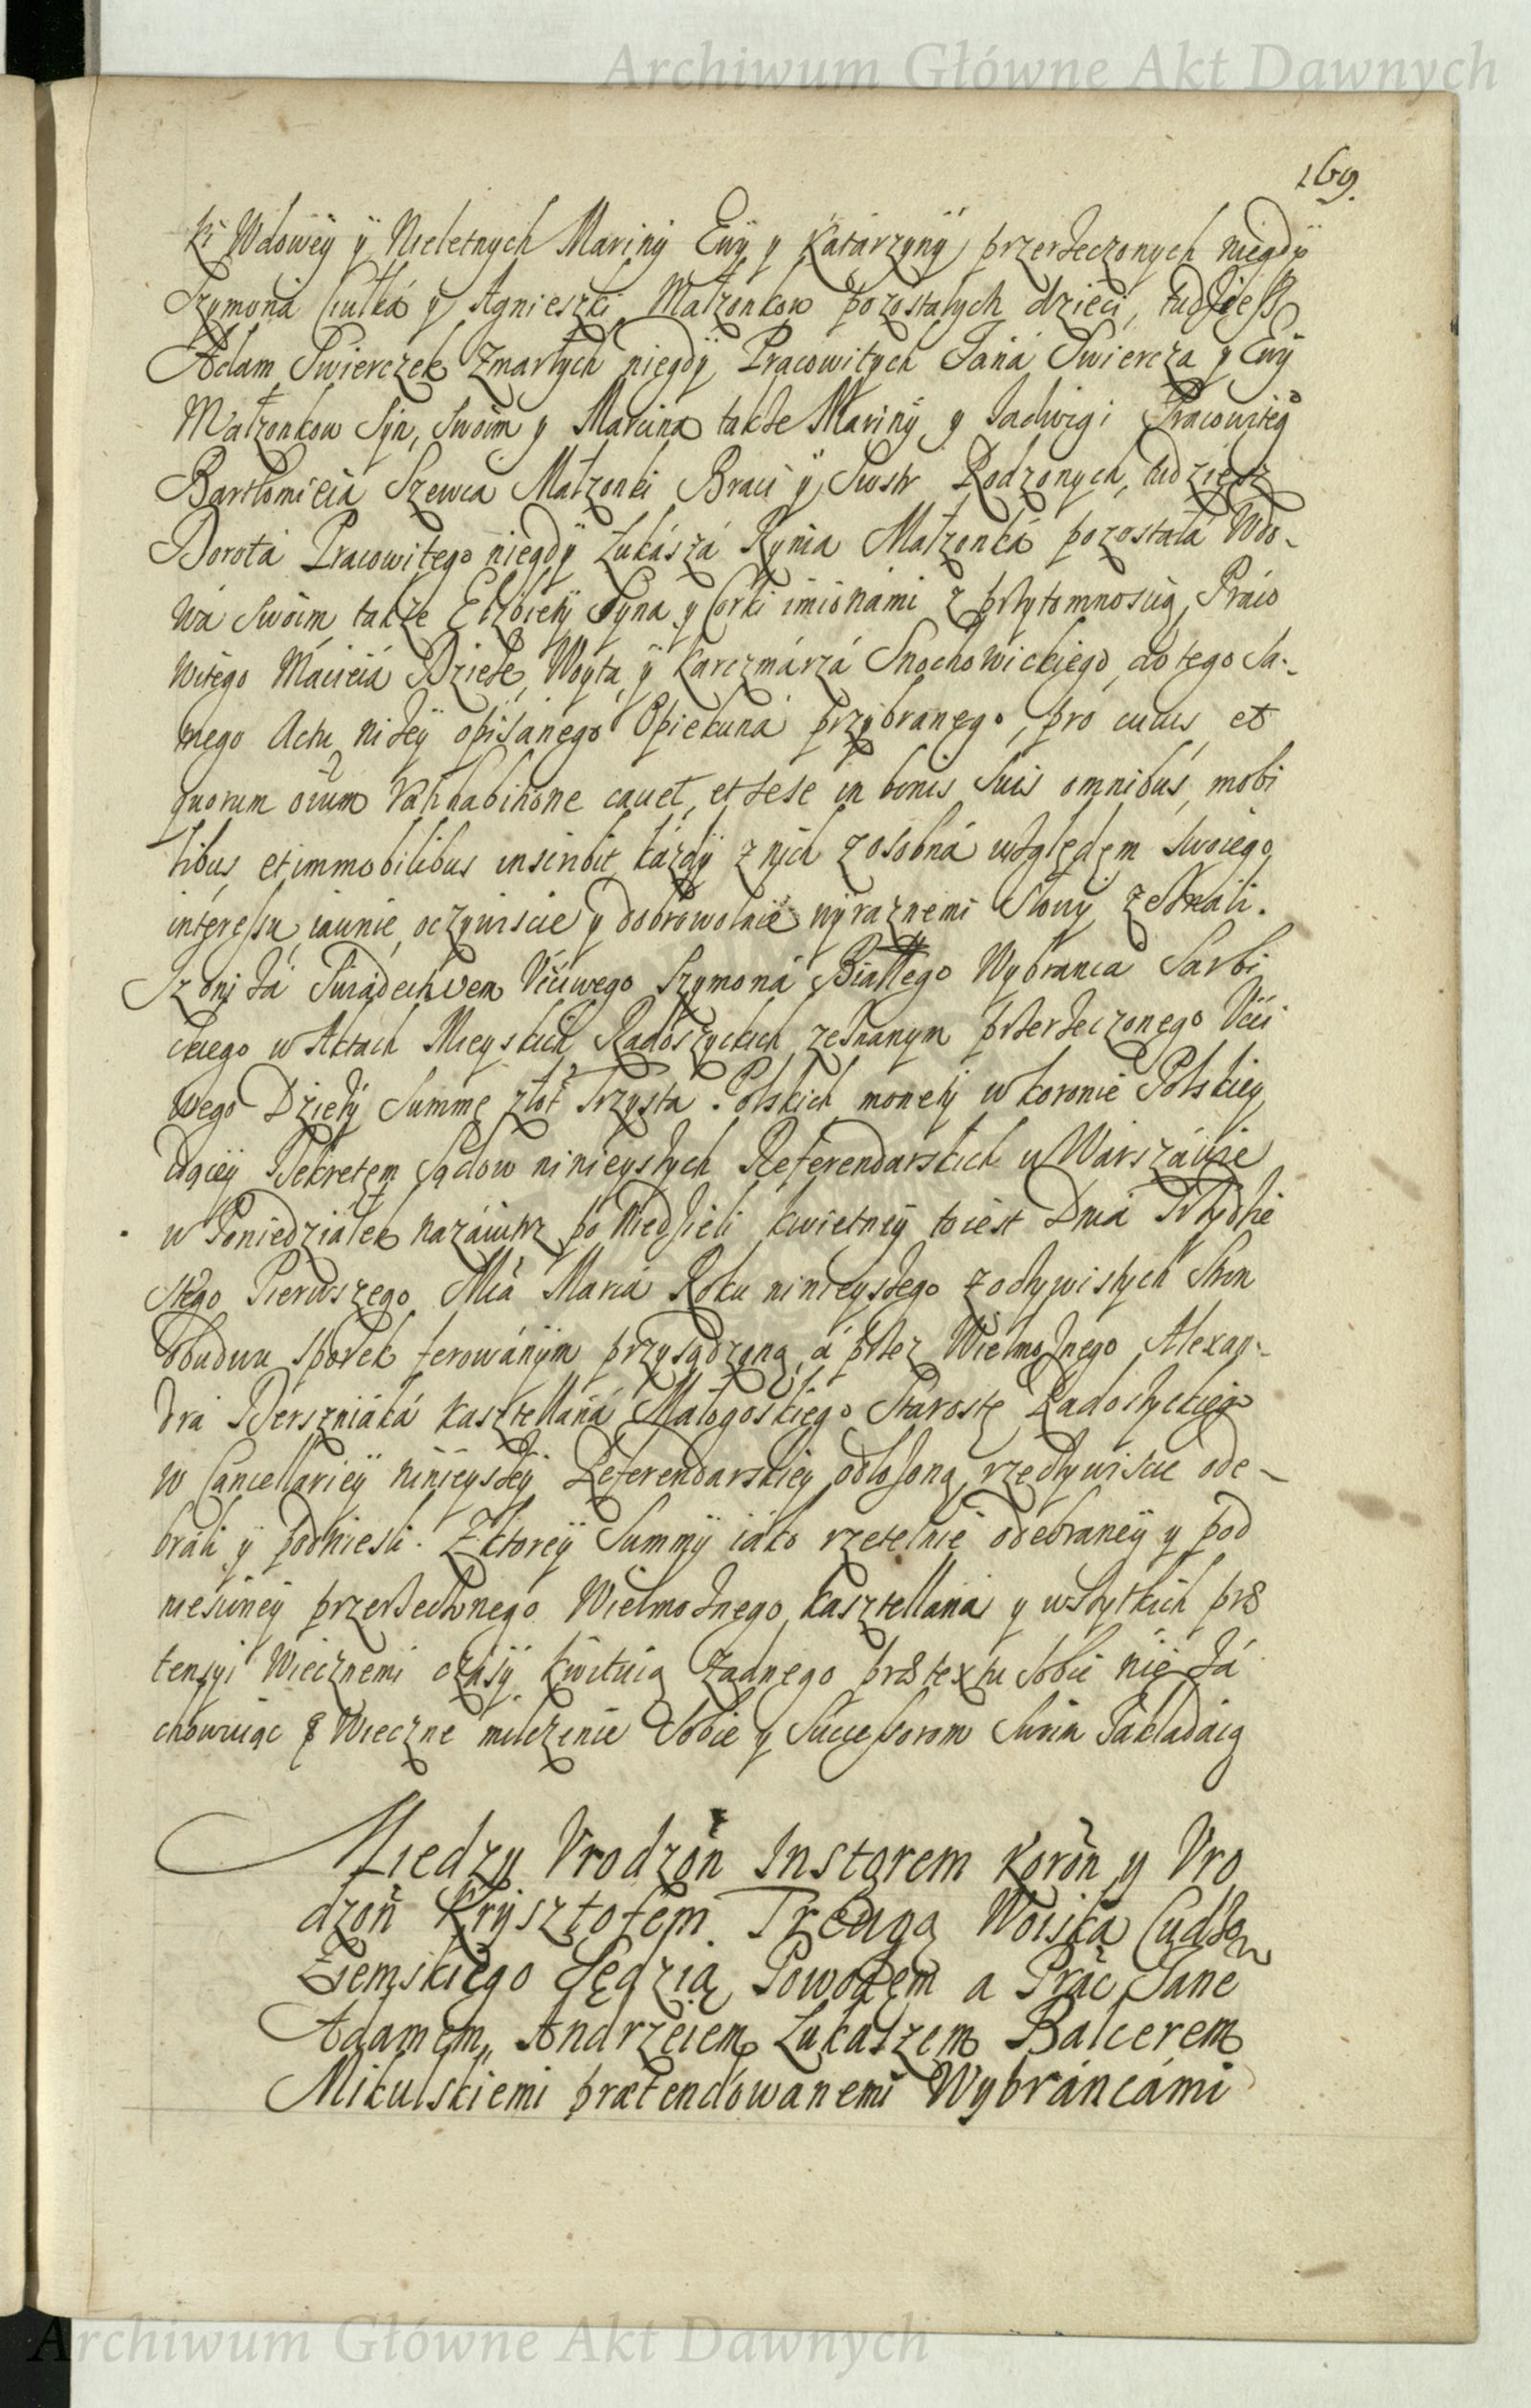 Archiwum Główne Akt Dawnych
169.
ki Wdowÿ ÿ Nieletnych Marinÿ Ewÿ y Katarzynÿ przerzeczonych niegdÿ
Szymona Ciułka y Agnieszki Małzonkow pozostałych dzieci, tudziesz
Adam Swierczek Zmarłych niegdÿ Pracowitych Jana Swiercza y Ewÿ
Małzonkow Sÿn, Swoim y Marcina takze Marinÿ y Jadwigi Pracowite͠g
Bartłomieia Szewca Małzonki Braci ÿ Siostr Rodzonych, tudziesz
Dorota Pracowitego niegdÿ Łukásza Rynia Małzonká pozostała Wdo-
wa Swoim takze Elzbietÿ Syna y Corki imionámi z przytomnoscią Práco
witego Macieiá Dziełe, Woyta ÿ Karczmárzá Snochowickiego, do tego Sa-
mego Actu nizeÿ opisanego Opiekuna przybranego, pro cuius et
quorum oium ratihabitione cavet, et sese in bonis suis omnibus, mobi
libus et immobilibus inscribit kazdÿ z nich zosobná względem swoiego
interessu, iawnie, oczywiscie y dobrowolnie wÿraznemi słowÿ zeznali.
Iz oni za Swiadectwem Vćciwego Szymoná Białłego Wybranca Sarbi
ckiego w Aktach Mieyskich Radoszyckich zeznanym przerzeczonego Vćci
wego Dziełÿ Summę złot Trzysta Polskich monetÿ w koronie Polskieÿ
idącéÿ Dekretem Sądow ninieyszych Referendarskich w Warszáwie
w Poniedziałek nazáiutrz po Niedzieli kwietneÿ to iest Dnia Trzydzie
stego Pierwszego Mca Marca Roku ninieyszego z oczywistych Stron
obudwu sporek ferowánÿm przysądzoną, á przez Wielmoznego Alexan-
dra Derszniáká kasztellaná Małogoskiego Starostę Radoszyckiego
w Cancellarieÿ ninieyszeÿ Referendarskiey odłozoną rzeczywiscie ode-
brali y podniesli. Z ktoreÿ Summÿ iáko rzetelnie odebraneÿ y pod
niesioneÿ przerzeczonego Wielmoznego kasztellana y wszytkich præ
tensyi Wiecznemi czásÿ kwituią zadnego prætextu sobie nie zá
chowuiąc y Wieczne milczenie sobie y Successorom Swoim zakładaią
Między Vrodzon͠ Instgorem Koron͠ y Vro
dzon͠ Krÿsztofem Treugą Woiska Cudzo
Ziemskiego Sędzią Powodęm a Prac͠ Jane͠
Adamem, Andrzeiem Łukaszem Balcerem
Mikulskiemi prætendowanemi Wybráncámi
Archiwum Główne Akt Dawnych